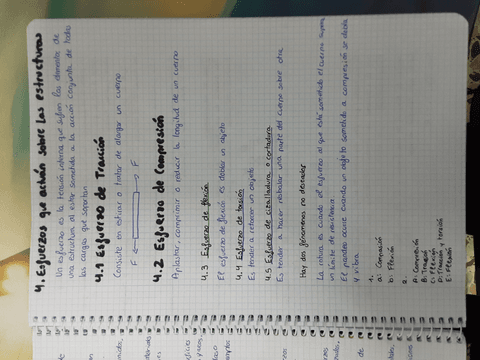 4. Esfuerzos que actúan sobre las estructuras
Un esfuerzo es la tensión interna que sufren los elementos de
una estructura al estar sometida a la acción conjunta de todas
las cargas que soportan
4.1 Esfuerzo de Tracción
Consiste en estirar o tratar de alargar un cuerpo
F F
4.2 Esfuerzo de Compresión
Aplastar, comprimir o reducir la longitud de un cuerpo
4.3 Esfuerzo de flexión
El esfuerzo de flexión es doblar un objeto
4.4 Esfuerzo de torsión
Es tender a retorcer un objeto
4.5 Esfuerzo de cizalladura o cortadura
Es tender a hacer resbalar una parte del cuerpo sobre otra
Hay dos fenómenos no deseados
La rotura es cuando el esfuerzo al que está sometido el cuerpo supera
un límite de resistencia.
El pandeo ocurre cuando un objeto sometido a compresión se dobla
y vibra.
1.
a: Compresión
b: Flexión
2.
A: Compresión
B: Torsión
C: Flexión
D: Tracción y torsión
E: Flexión